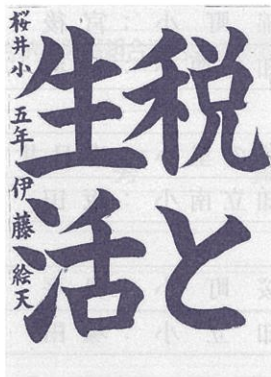 税と
生活
桜井小 五年 伊藤 絵天